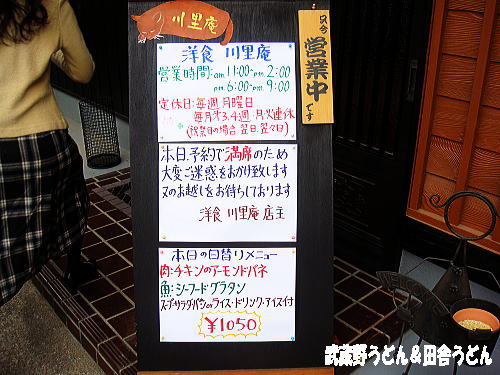 川里庵
只今
営業中
です
洋食 川里庵
営業時間:am 11:00-pm 2:00
pm 6:00-pm 9:00
定休日:毎週月曜日
毎月第3.4週:月火連休
(祝祭日の場合、翌日、翌々日)
本日、予約で満席のため
大変ご迷惑をおかけ致します
又のお越しをお待ちしております
洋食 川里庵 店主
本日の日替りメニュー
肉:チキンのアーモンドパネ
魚:シーフードグラタン
スープ・サラダ・パンorライス・ドリンク・アイス付
¥1050
武蔵野うどん&田舎うどん